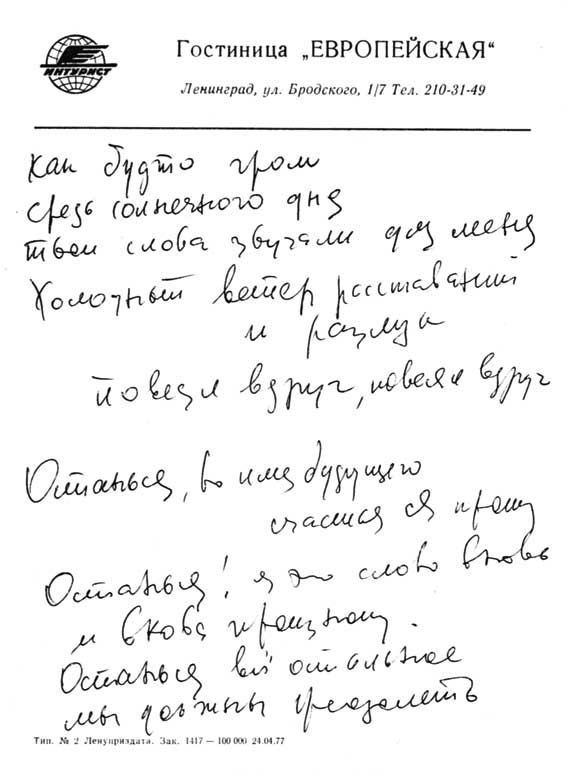 ИНТУРИСТ
Гостиница „ЕВРОПЕЙСКАЯ“
Ленинград, ул. Бродского, 1/7 Тел. 210-31-49
Как будто гром
средь солнечного дня
твои слова звучали для меня
Холодный ветер расставаний
и разлук
повеял вдруг, повеял вдруг
Останься, во имя будущего
счастья я прошу
Останься! я это слово вновь
и снова произношу.
Останься всё остальное
мы должны преодолеть
Тип. № 2 Ленуприздата. Зак. 1417 — 100 000 24.04.77